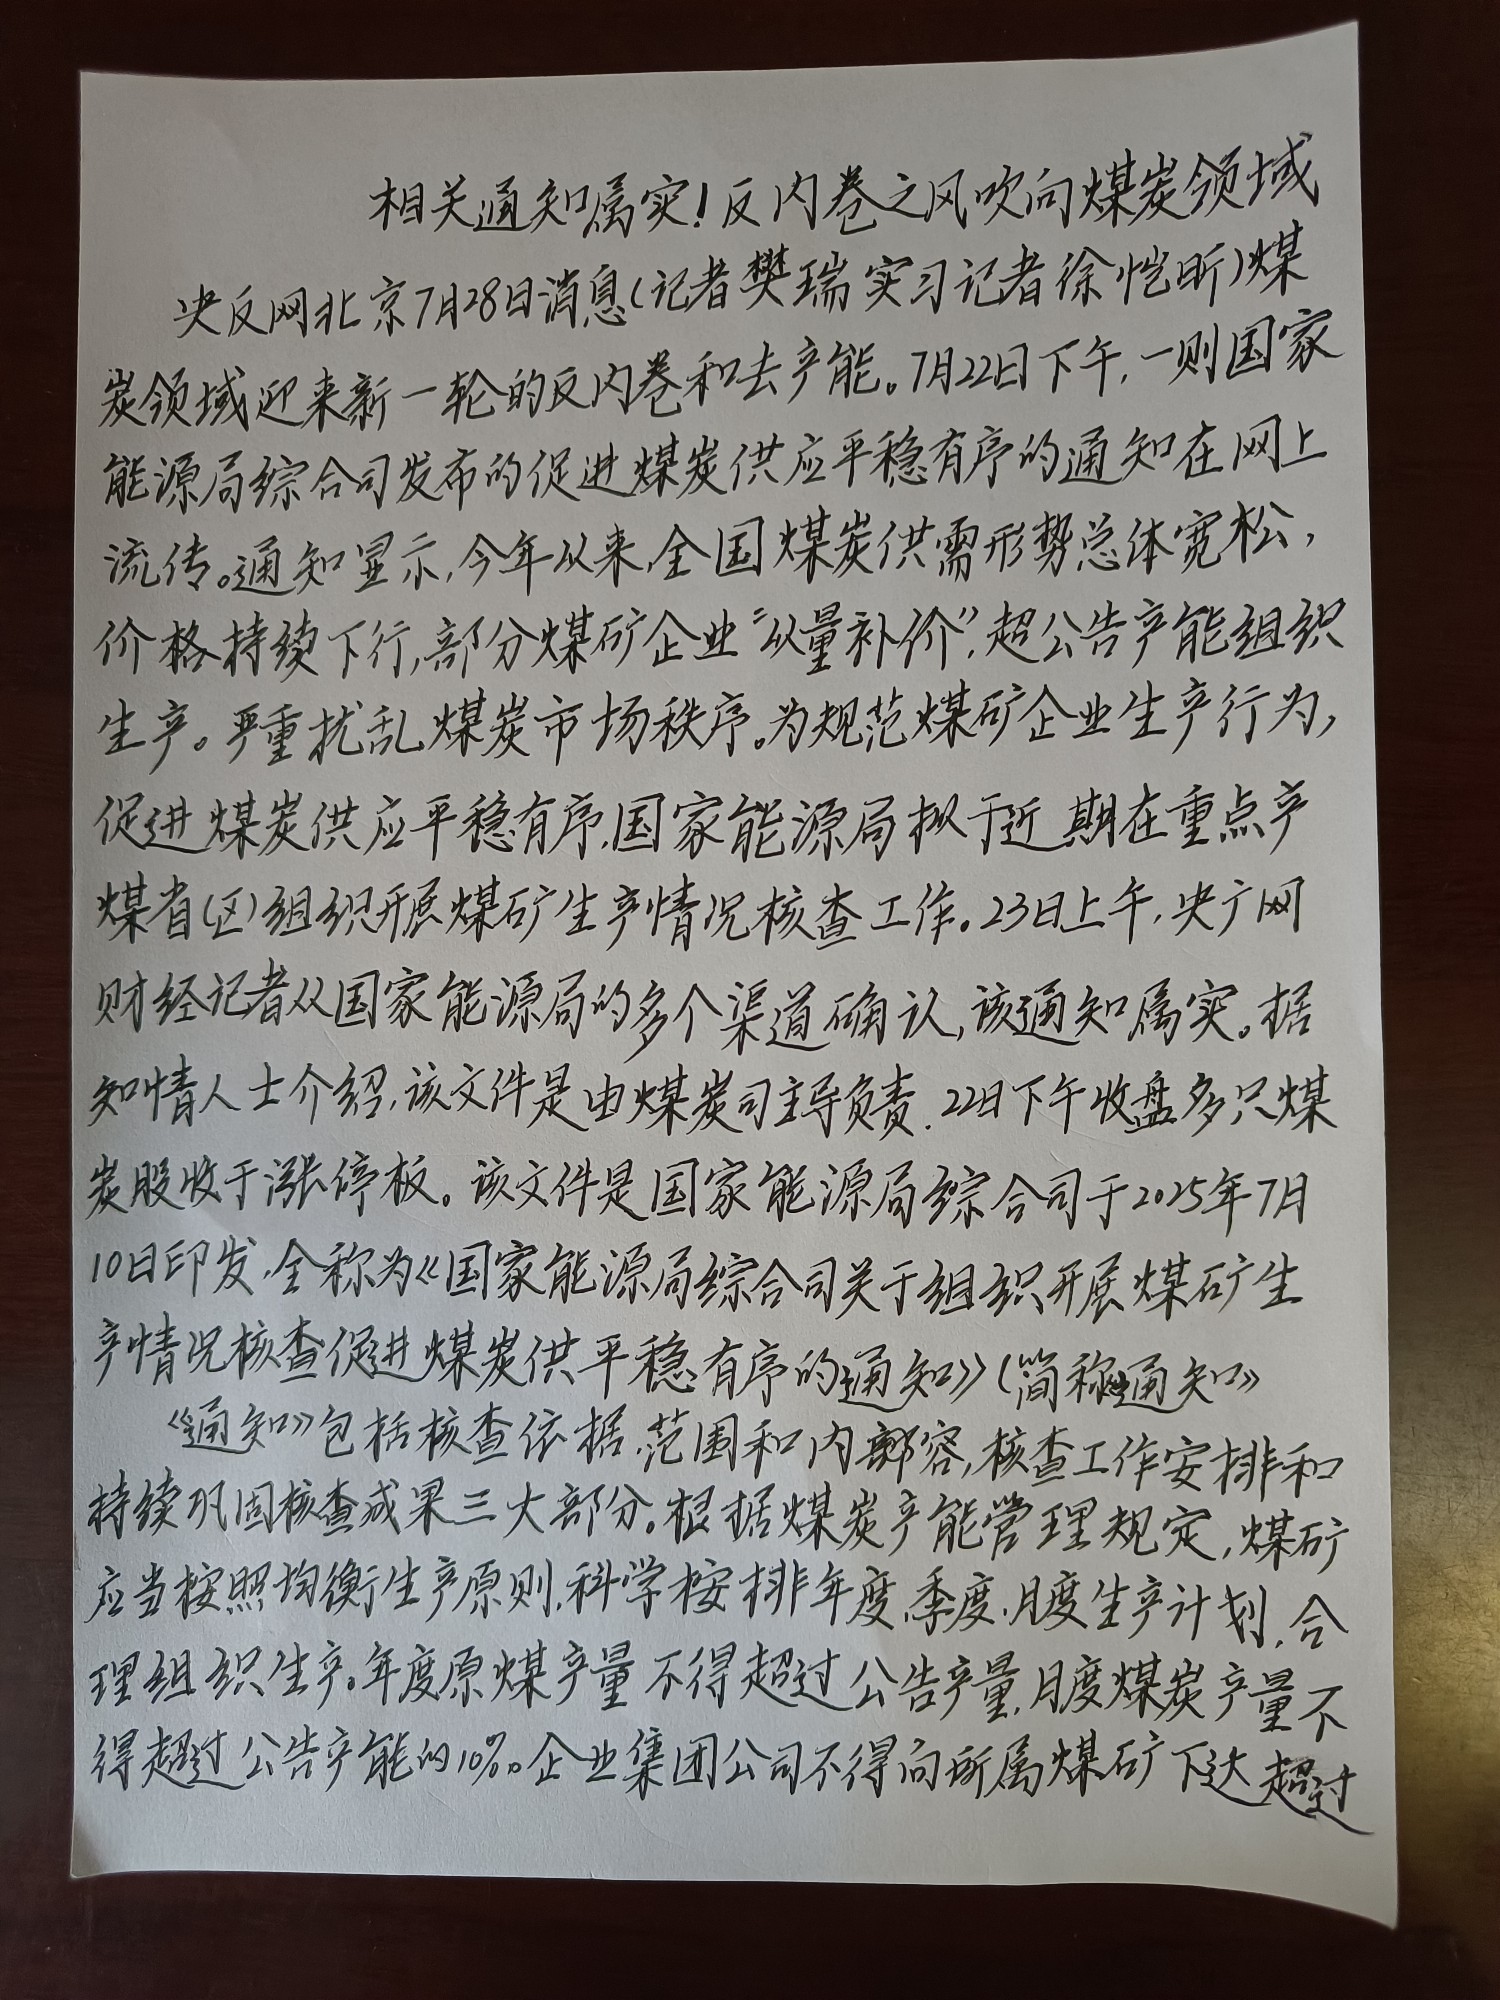 相关通知属实!反内卷之风吹向煤炭领域
央反网北京7月28日消息(记者樊瑞实习记者徐恺昕)煤
炭领域迎来新一轮的反内卷和去产能。7月22日下午,一则国家
能源局综合司发布的促进煤炭供应平稳有序的通知在网上
流传。通知显示,今年以来,全国煤炭供需形势总体宽松,
价格持续下行,部分煤矿企业“以量补价”,超公告产能组织
生产。严重扰乱煤炭市场秩序。为规范煤矿企业生产行为,
促进煤炭供应平稳有序,国家能源局拟于近期在重点产
煤省(区)组织开展煤矿生产情况核查工作。23日上午,央广网
财经记者从国家能源局的多个渠道确认,该通知属实。据
知情人士介绍,该文件是由煤炭司主导负责.22日下午收盘多只煤
炭股收于涨停板。该文件是国家能源局综合司于2025年7月
10日印发,全称为《国家能源局综合司关于组织开展煤矿生
产情况核查促进煤炭供平稳有序的通知》(简称通知》
《通知》包括核查依据,范围和内部容,核查工作安排和
持续巩固核查成果三大部分。根据煤炭产能管理规定,煤矿
应当按照均衡生产原则,科学桉排年度,季度,月度生产计划,合
理组织生产。年度原煤产量不得超过公告产量,月度煤炭产量不
得超过公告产能的10%。企业集团公司不得向所属煤矿下达超过